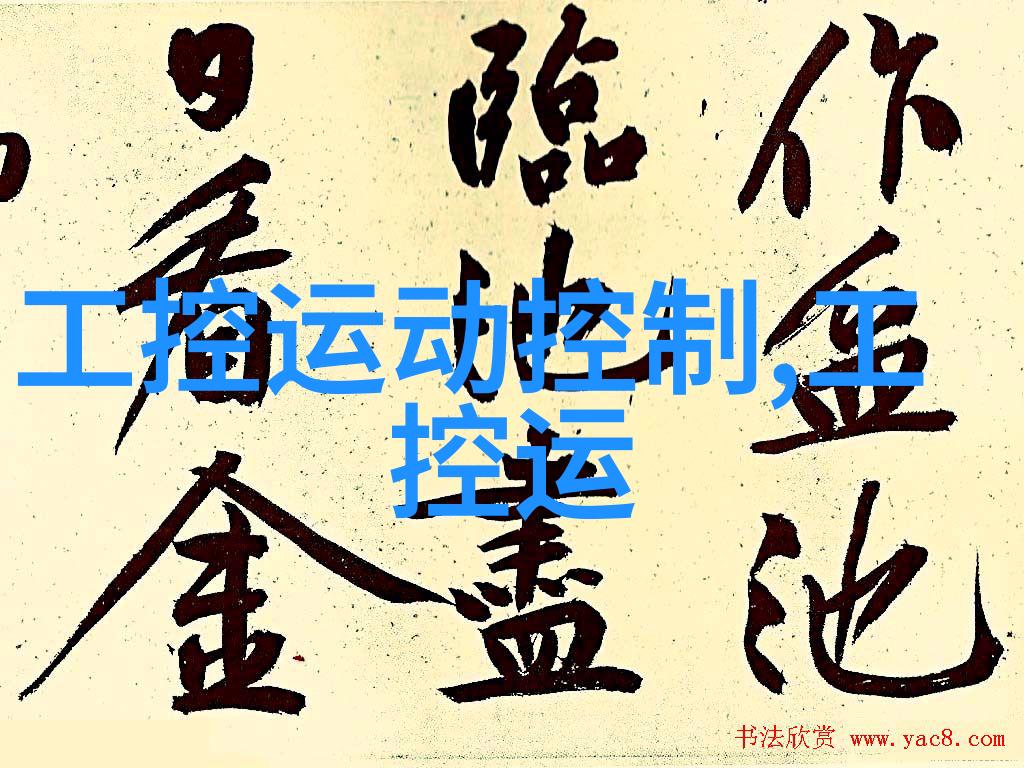 工控运动控制,工
控运
作盆池
臨盡
日看金
书法欣赏 www.yac8.com